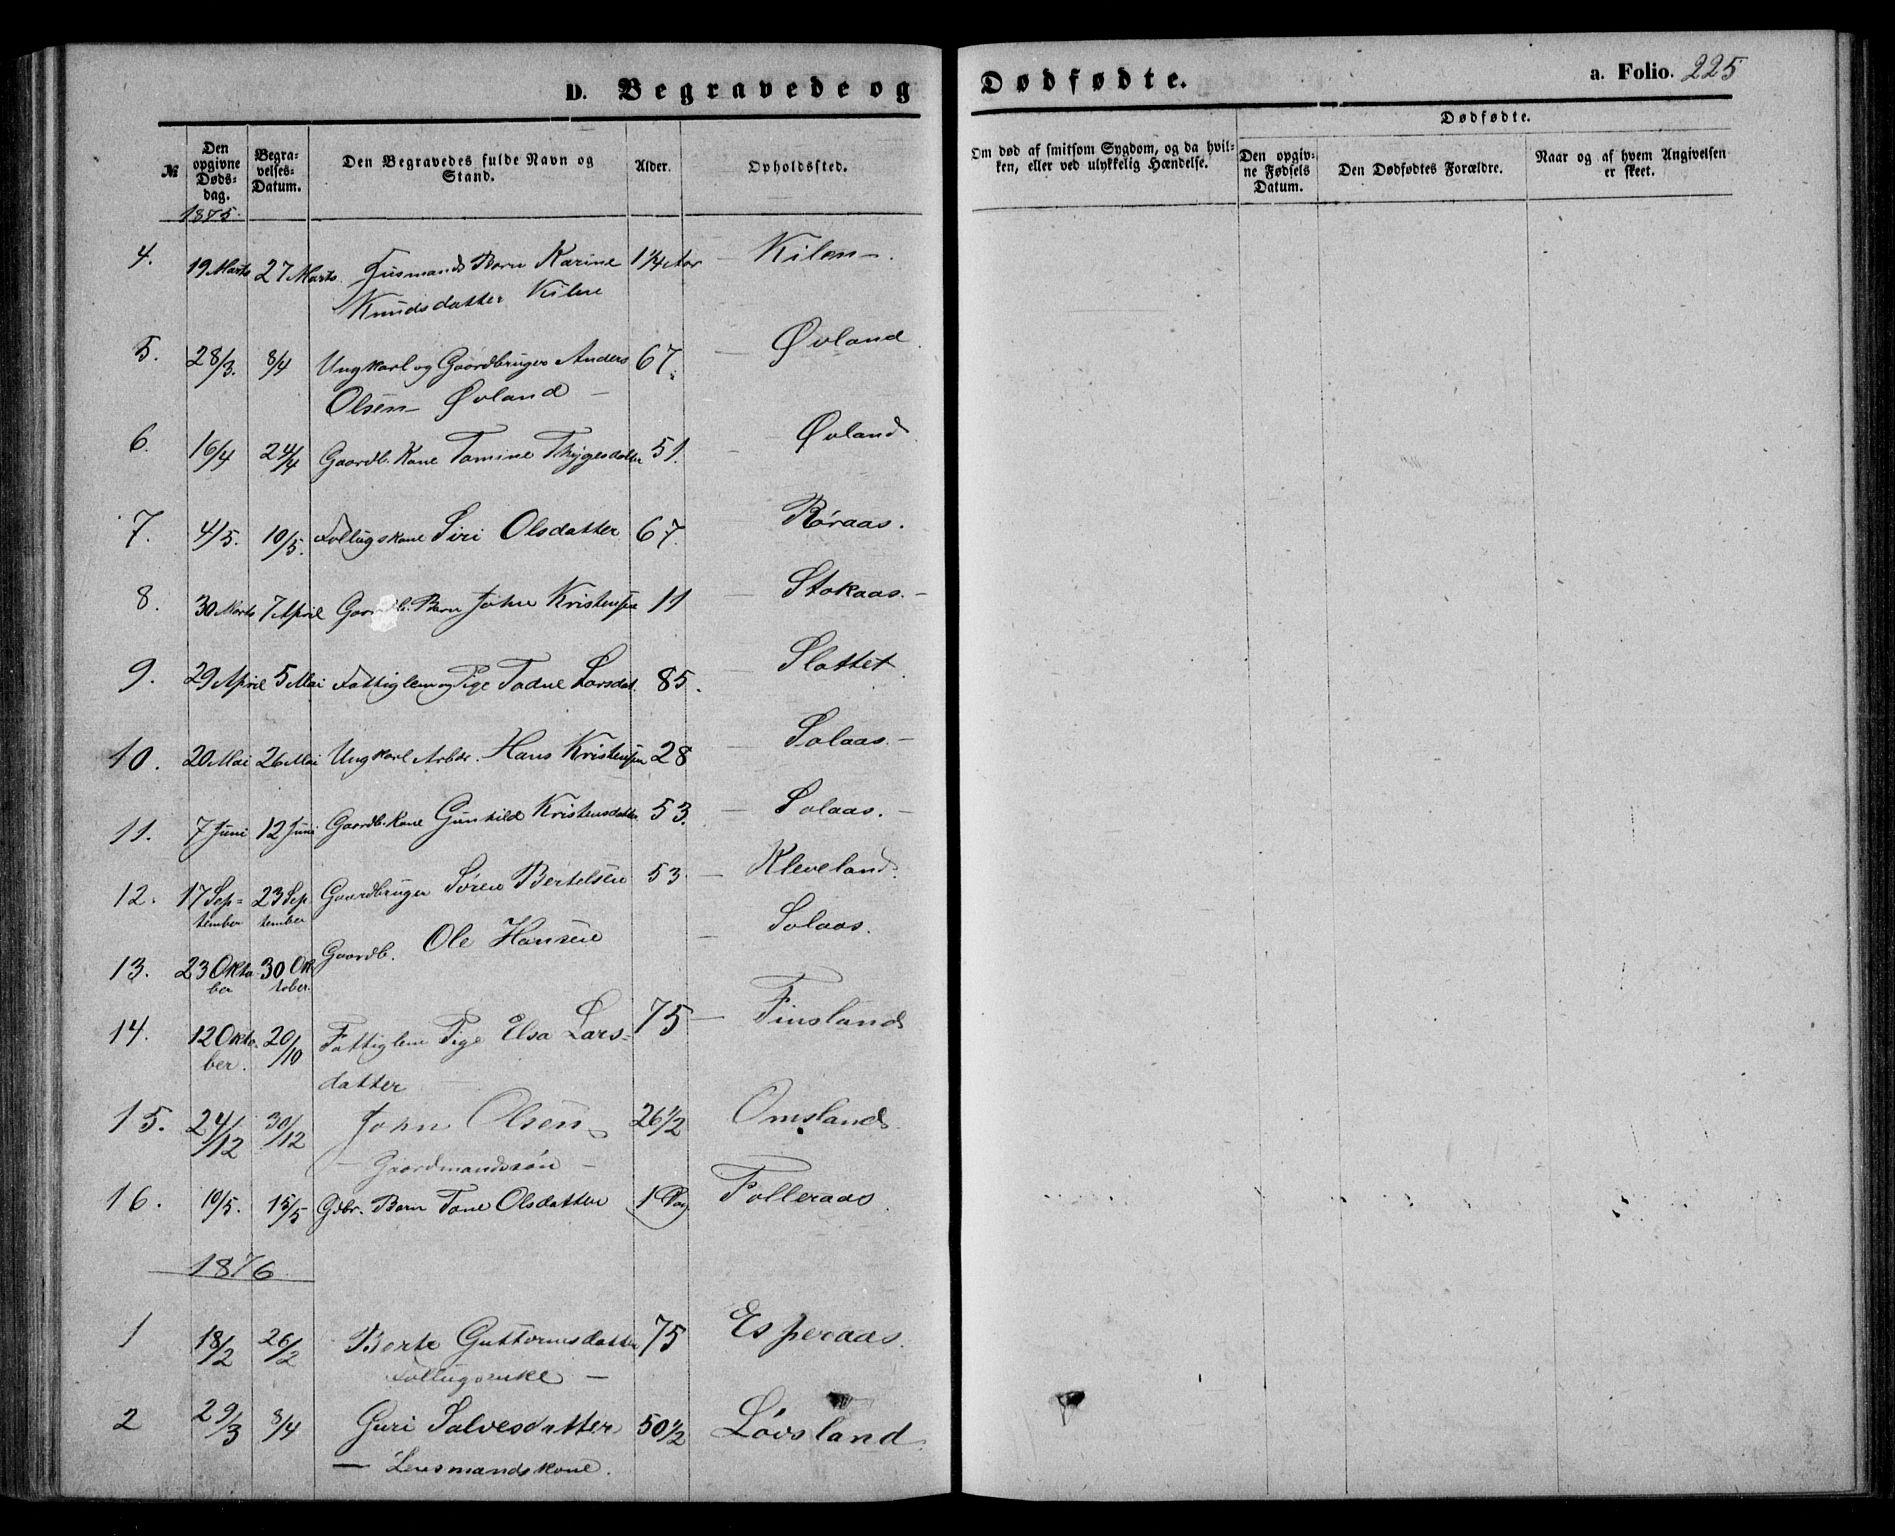 D. Begravede og Dødfødte.
a. Folio. 225
№
Den opgivne Dødsdag.
Begravelses-Datum.
Den Begravedes fulde Navn og Stand.
Alder.
Opholdssted.
Om død af smitsom Sygdom, og da hvilken, eller ved ulykkelig Hændelse.
Dødfødte.
Den opgivne Fødsels Datum.
Den Dødfødtes Forældre.
Naar og af hvem Angivelsen er skeet.
1875.
4. 19 Marts 27 Marts. Husmands Barn Karine 1 1/4 Aar – Kilen –.
Knudsdatter Kilen
5. 28/3. 8/4 Ungkarl og Gaardbruger Anders 67. – Øvland.
Olsen – Øvland –
6. 16/4 24/4 Gaardb. Kone Tomine Thygesdatter 51. – Øvland.
7. 4/5. 10/5. Follugskone Siri Olsdatter 67. Røraas.
8. 30 Marts 7 April Gaardb. Barn John Kristensen 11 – Stokaas. –
9. 29 April 5 Mai Fattiglem og Pige Todne Larsdat. 85. – Slottet.
10. 20 Mai 26 Mai Ungkarl Arbdr. Hans Kristensen 28 – Solaas. –
11. 7 Juni 12 Juni Gaardb. Kone Gunhild Kristensdatter 53. – Solaas. –
12. 17 Sep- 23 Sep Gaardbruger Søren Bertelsen 53 – Kleveland.
tember tember
13. 23 Okto 30 Ok Gaardb. Ole Hansen – Solaas.
ber tober.
14. 12 Okto. 20/10 Fattiglem Pige Elsa Lars- 75 – Finsland
ber. datter –
15. 24/12 30/12 John Olsen 26 1/2 Omsland.
– Gaardmandssøn –
16. 10/5. 15/5 Gdbr. Barn Tone Olsdatter 1 Dag Folleraas.
1876
1 18/2 26/2 Berte Guttormsdatter 75 Esperaas.
Follugsenke –
2 29/3 8/4 Guri Salvesdatter 50 1/2 Løvsland.
– Lensmandskone.